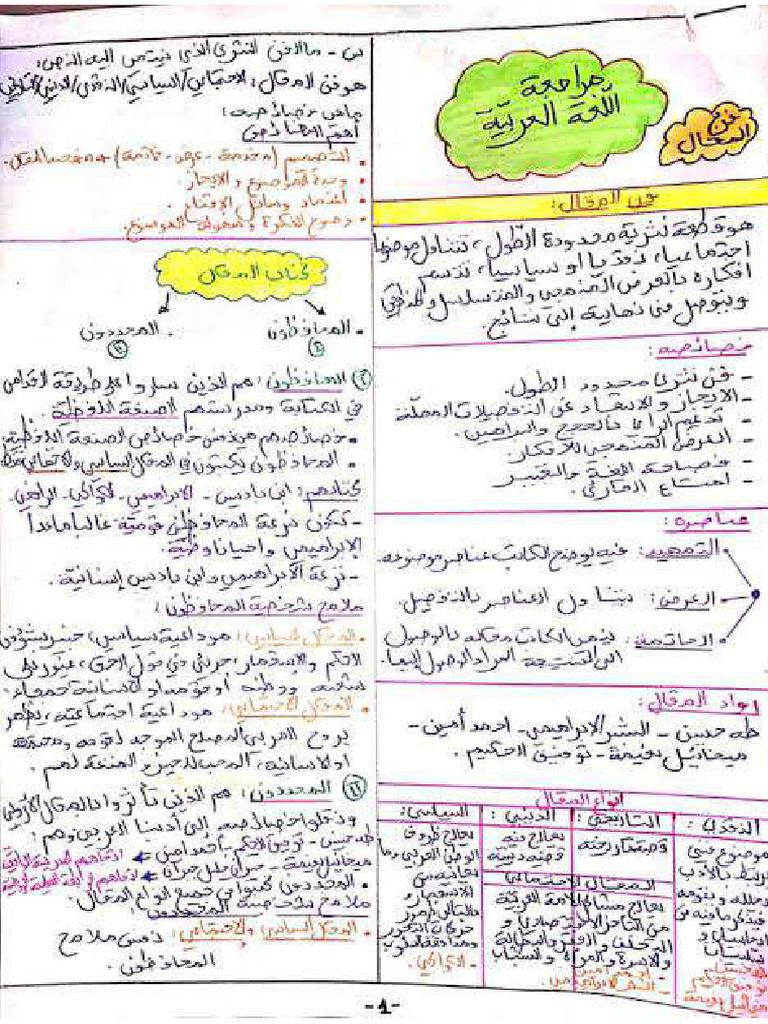 مراجعة
اللّغة العربيّة
فنّ
المقال
فن المقال:
هو قطعة نثرية محدودة الطول، تتناول موضوعا
اجتماعيا، نقديا او سياسيا، تتسم
افكاره بالعرض المنهجي والمتسلسل والمنطقي
ويتوصل في نهايته إلى نتائج.
خصائصه:
- فن نثري محدود الطول.
- الايجاز والابتعاد عن التفصيلات المملة
- تدعيم الرأي بالحجج والبراهين.
- العرض المنهجي للأفكار
- فصاحة اللغة والتعبير
- امتاع القارئ.
عناصره:
التمهيد: فيه يوضح الكاتب عناصر موضوعه.
العرض: يتناول العناصر بالتفصيل.
الخاتمة: ينهي الكاتب مقاله بالوصول
الى النتيجة المراد الوصول إليها.
رواد المقال:
طه حسين - البشير الابراهيمي - احمد أمين -
ميخائيل نعيمة - توفيق الحكيم.
انواع المقال
النقدي:
موضوع فني
يرتبط بالأدب
التاريخي:
وصف تاريخه
الديني:
يعالج فيه
قضية دينية
السياسي:
يعالج ظروف
الوطن العربي وما
يعانيه من
الاستعمار و
حركات التحرر
- الكواكبي.
المقال الاجتماعي
يعالج مشاكل الأمة العربية
من التأخر الاقتصادي و
التخلف و الفقر والبطالة
والاسرة و المرأة و الشباب
- احمد أمين
س - ما الفن النثري الذي ينتمي إليه النص:
هو فن المقال: الاجتماعي/السياسي/النقدي/الديني/التاريخي
ماهي خصائصه:
أهم الخصائص
• التصميم (مقدمة - عرض - خاتمة) منهجية المقال.
• وحدة الموضوع والايجاز.
• اعتماد وسائل الإقناع.
• وضوح الفكرة وسهولة الموضوع.
كتاب المقال
• المحافظون
• المجددون
المحافظون: هم الذين ساروا على طريقة الاقدمين
في الكتابة ومدرستهم الصنعة اللفظية
• خصائصهم هي من خصائص الصنعة اللفظية.
• المحافظون يكتبون في المقال السياسي والاجتماعي
كتابهم: ابن باديس - الابراهيمي - الكواكبي - الرافعي.
- تكون نزعة المحافظين قومية غالبا ماعدا
الإبراهيمي واحيانا وطنية.
- نزعة الابراهيمي وابن باديس إنسانية.
ملامح شخصية المحافظون:
• المقال السياسي: هو داعية سياسي، خبير بشؤون
الحكم والاستعمار، جريئ في قول الحق، غيور على
شعبه ووطنه او قومه او الانسانية جمعاء.
• المقال الاجتماعي: هو داعية اجتماعية، يظهر
بروح العربي المصلح الموجه لقومه ومجتمعه
او الانسانية، المحب للخير و المنفعة لهم.
المجددون: هم الذين تأثروا بالمقال الأوروبي
ونقلوا خصائصه إلى أدبنا العربي وهم:
طه حسين - توفيق الحكيم - أحمد أمين
ميخائيل نعيمة - جبران خليل جبران
• المجددون كتبوا في جميع انواع المقال.
ملامح شخصية المجددون:
• المقال السياسي والاجتماعي: نفس ملامح
المحافظون.
-1-